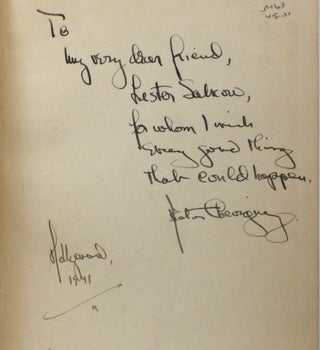 To
My very dear friend,
Lester Salkow,
for whom I wish
every good thing
that could happen.
Hector Chevigny
Hollywood,
1941